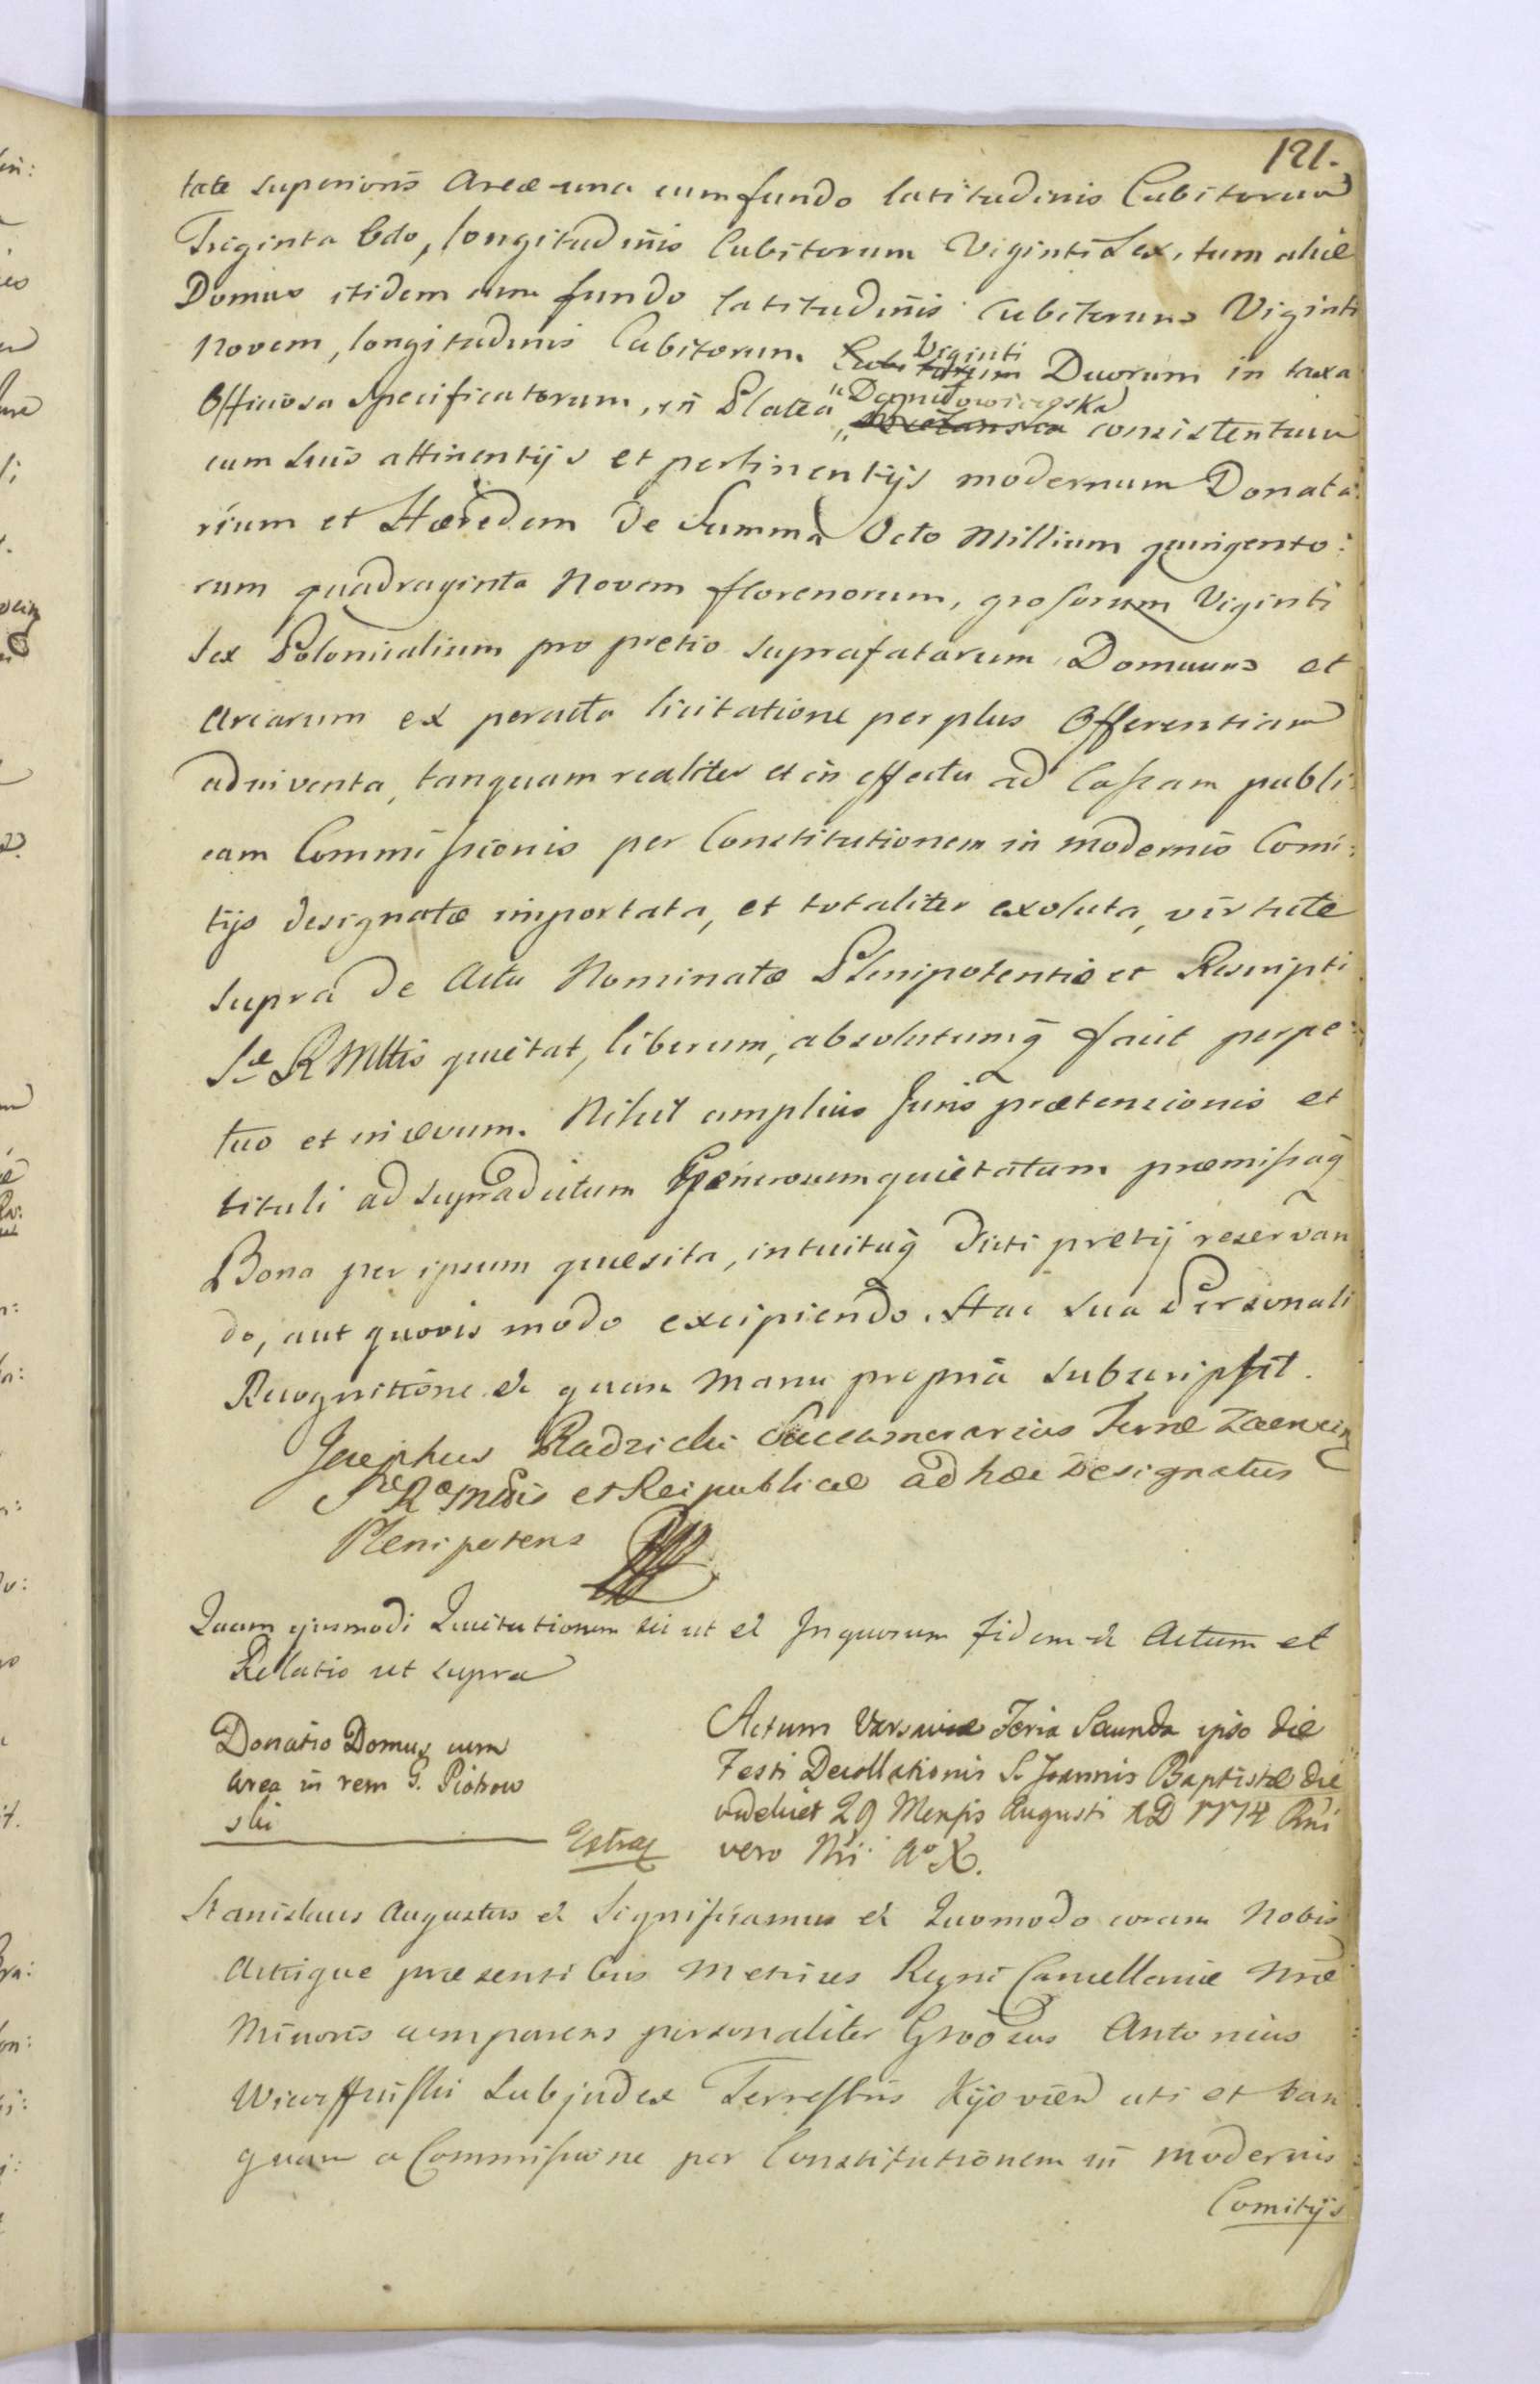 121.
tate superioris Areæ una cum fundo latitudinis Cubitorum
Triginta Octo, longitudinis Cubitorum Viginti Sex, tum aliæ
Domus itidem cum fundo latitudinis Cubitorum Viginti
Novem, longitudinis Cubitorum Viginti Duorum in taxa
Officiosa Specificatorum, in Platea "Daniłowiczoska consistentium
cum suis attinentijs et pertinentijs modernum Donata:
rium et Hæredem de Summa Octo Millium quingento:
rum quadraginta Novem florenorum, grossorum Viginti
sex Polonicalium pro pretio suprafatarum Domuum et
Arearum ex peracta licitatione per plus Offerentiam
adinventa, tanquam realiter et in effectu ad Cassam publi:
cam Commissionis per Constitutionem in modernis Comi:
tijs designatæ importata, et totaliter exoluta, virtute
supra de Actu Nominatæ Plenipotentiæ et Rescripti
Sæ R Mttis quietat, liberum, absolutumq̃ facit perpe:
tuo et in ævum. Nihil amplius Juris prætensionis et
tituli ad supradictum Generosum quietatum præmissaq̃
Bona per ipsum quæsita, intuituq̃ dicti pretij reservan
do, aut quovis modo excipiendo. Hac sua Personali
Recognitione & quam Manu propria subscripsit.
Josephus Radzicki Succamerarius Terræ Zacrocin
Sæ Ræ Mttis et Reipublicæ ad hæc Designatus
Plenipotens
Quam ejusmodi Quietationem sic ut & In quorum fidem & Actum et
Relatio ut supra
Donatio Domus cum
Area in rem G. Piotrow
ski
Extrax
Actum Varsaviæ Feria Secunda ipso die
Festi Decollationis S. Joannis Baptistæ die
videlicet 29 Mensis Augusti AD 1774 Rñi
vero Nri Ao X.
Stanislaus Augustus & Significamus & Quomodo coram Nobis
Actisque præsentibus Metrices Regni Cancellariæ Nræ
Minoris comparens personaliter Gnrosus Antonius
Subjudex Terrestris Kijovien uti et tan
quam a Commissione per Constitutionem in modernis
Comitijs